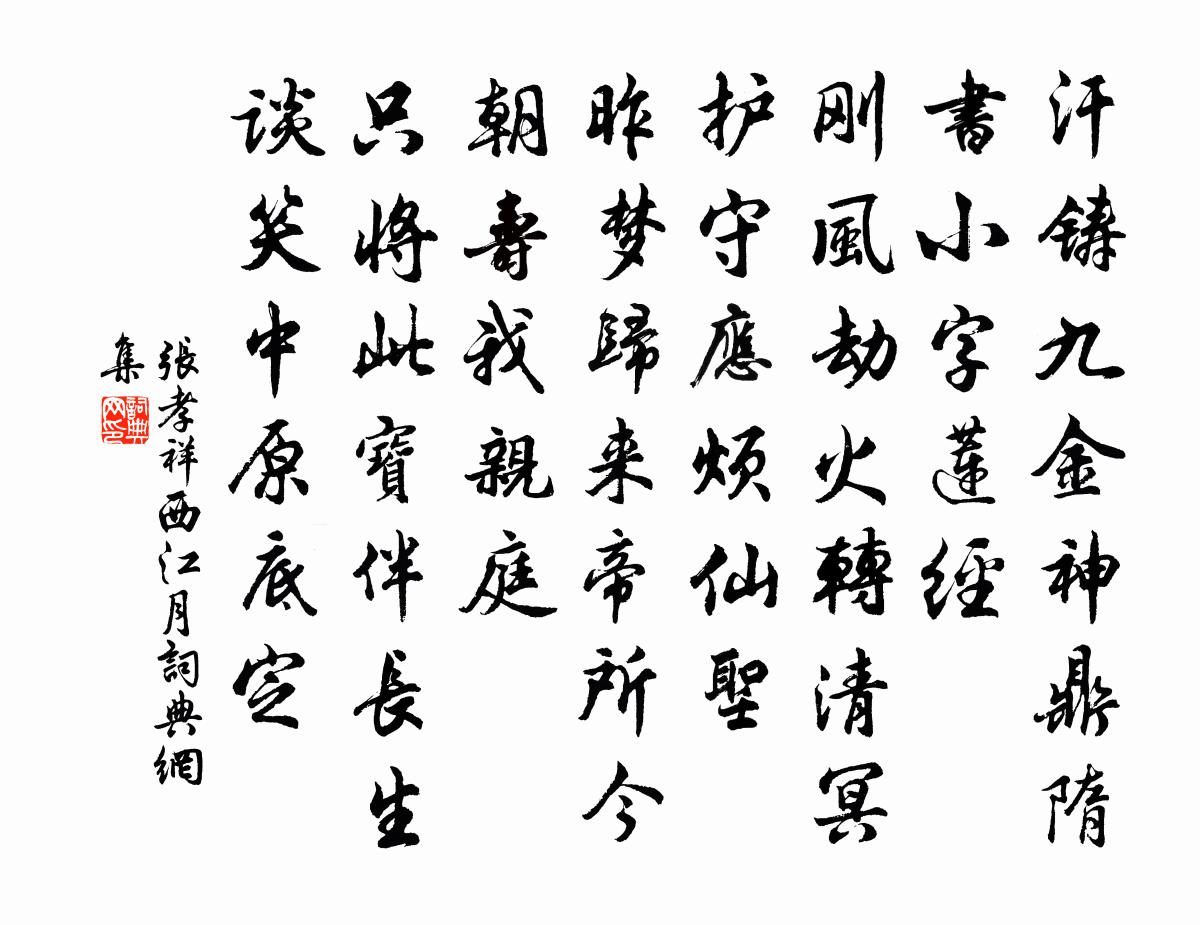 汗鑄九金神鼎隋
書小字蓮經
刚風劫火轉清冥
护守應烦仙聖
昨梦歸来帝所今
朝壽我親庭
只將此寶伴長生
谈笑中原底定
張孝祥西江月詞典網
集
詞典
网印